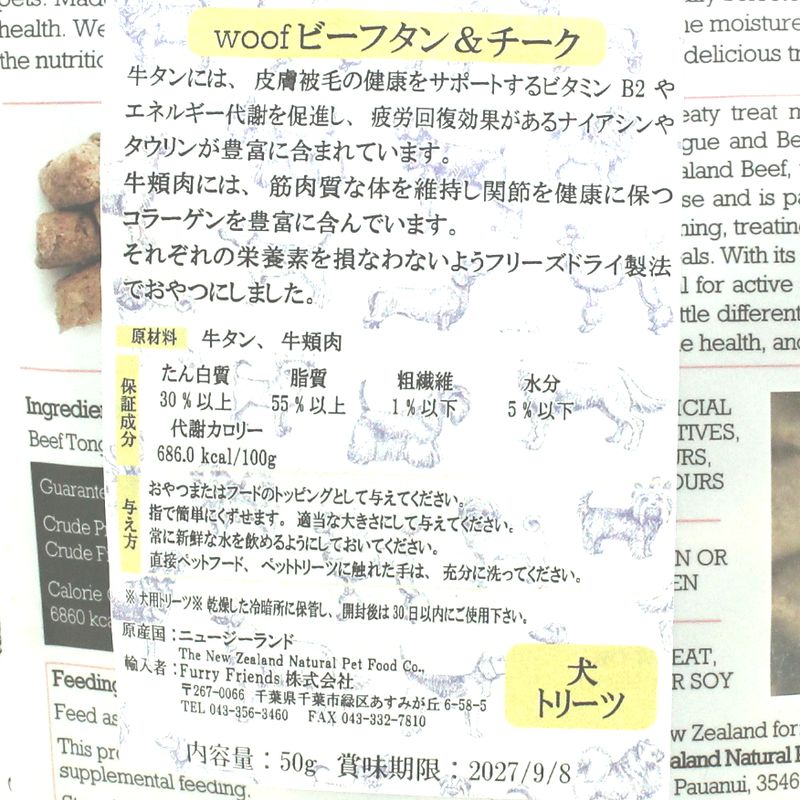 pets. Made
health. We
the nutritio
woof ビーフタン&チーク
牛タンには、皮膚被毛の健康をサポートするビタミン B2 や
エネルギー代謝を促進し、疲労回復効果があるナイアシンや
タウリンが豊富に含まれています。
牛頬肉には、筋肉質な体を維持し関節を健康に保つ
コラーゲンを豊富に含んでいます。
それぞれの栄養素を損なわないようフリーズドライ製法
でおやつにしました。
原材料 牛タン、牛頬肉
保証成分
たん白質 脂質 粗繊維 水分
30%以上 55%以上 1%以下 5%以下
代謝カロリー
686.0 kcal/100g
与え方
おやつまたはフードのトッピングとして与えてください。
指で簡単にくずせます。適当な大きさにして与えてください。
常に新鮮な水を飲めるようにしておいてください。
直接ペットフード、ペットトリーツに触れた手は、充分に洗ってください。
※ 犬用トリーツ※ 乾燥した冷暗所に保管し、開封後は30日以内にご使用下さい。
原産国:ニュージーランド
The New Zealand Natural Pet Food Co.,
輸入者:Furry Friends 株式会社
〒267-0066 千葉県千葉市緑区あすみが丘 6-58-5
TEL 043-356-3460 FAX 043-332-7810
犬
トリーツ
内容量:50g 賞味期限:2027/9/8
Ingredie
Beef Tong
Guarante
Crude P
Crude F
Calorie
6860 kca
Feeding
Feed as
This pr
supplemental feeding.
he moisture
delicious tr
eaty treat
gue and Be
aland Beef,
se and is pa
ning, treatin
als. With its
l for active
ttle different
e health, and
ICIAL
TIVES,
URS,
OURS
N OR
EN
EAT,
R SOY
w Zealand for
aland Natural
Pauanui, 3546